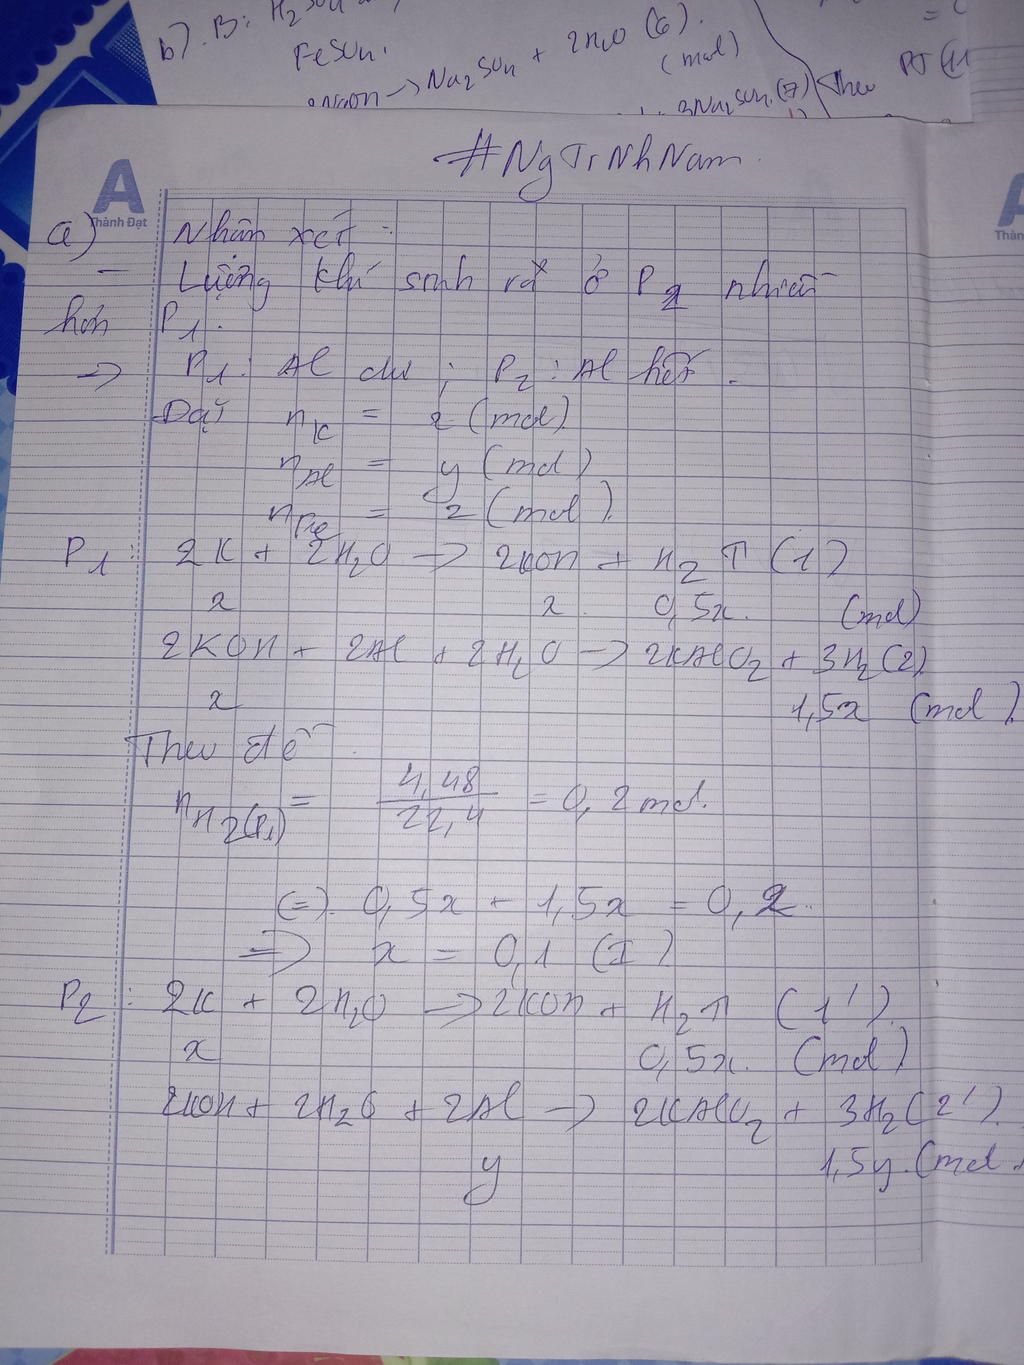 b). B: H2SO4
FeSO4.
2NaOH → Na2SO4 + 2H2O (6).
(mol)
3Na2SO4 (7)
Theo PT (11
= (
#NgTrNhNam.
A
Thành Đạt
a) Nhận xét:
- Lượng khí sinh ra ở P2 nhiều
hơn P1.
=> P1: Al dư ; P2: Al hết.
Đặt nK = x (mol)
nAl = y (mol)
nFe = z (mol).
P1: 2K + 2H2O → 2KOH + H2 ↑ (1)
x x 0,5x. (mol)
2KOH + 2Al + 2H2O → 2KAlO2 + 3H2 (2).
x 1,5x (mol).
Theo đề
nH2(P1) = 4,48 / 22,4 = 0,2 mol.
(=). 0,5x + 1,5x = 0,2.
=> x = 0,1 (I)
P2: 2K + 2H2O → 2KOH + H2 ↑ (1').
x 0,5x. (mol)
2KOH + 2H2O + 2Al → 2KAlO2 + 3H2 (2').
y 1,5y. (mol)